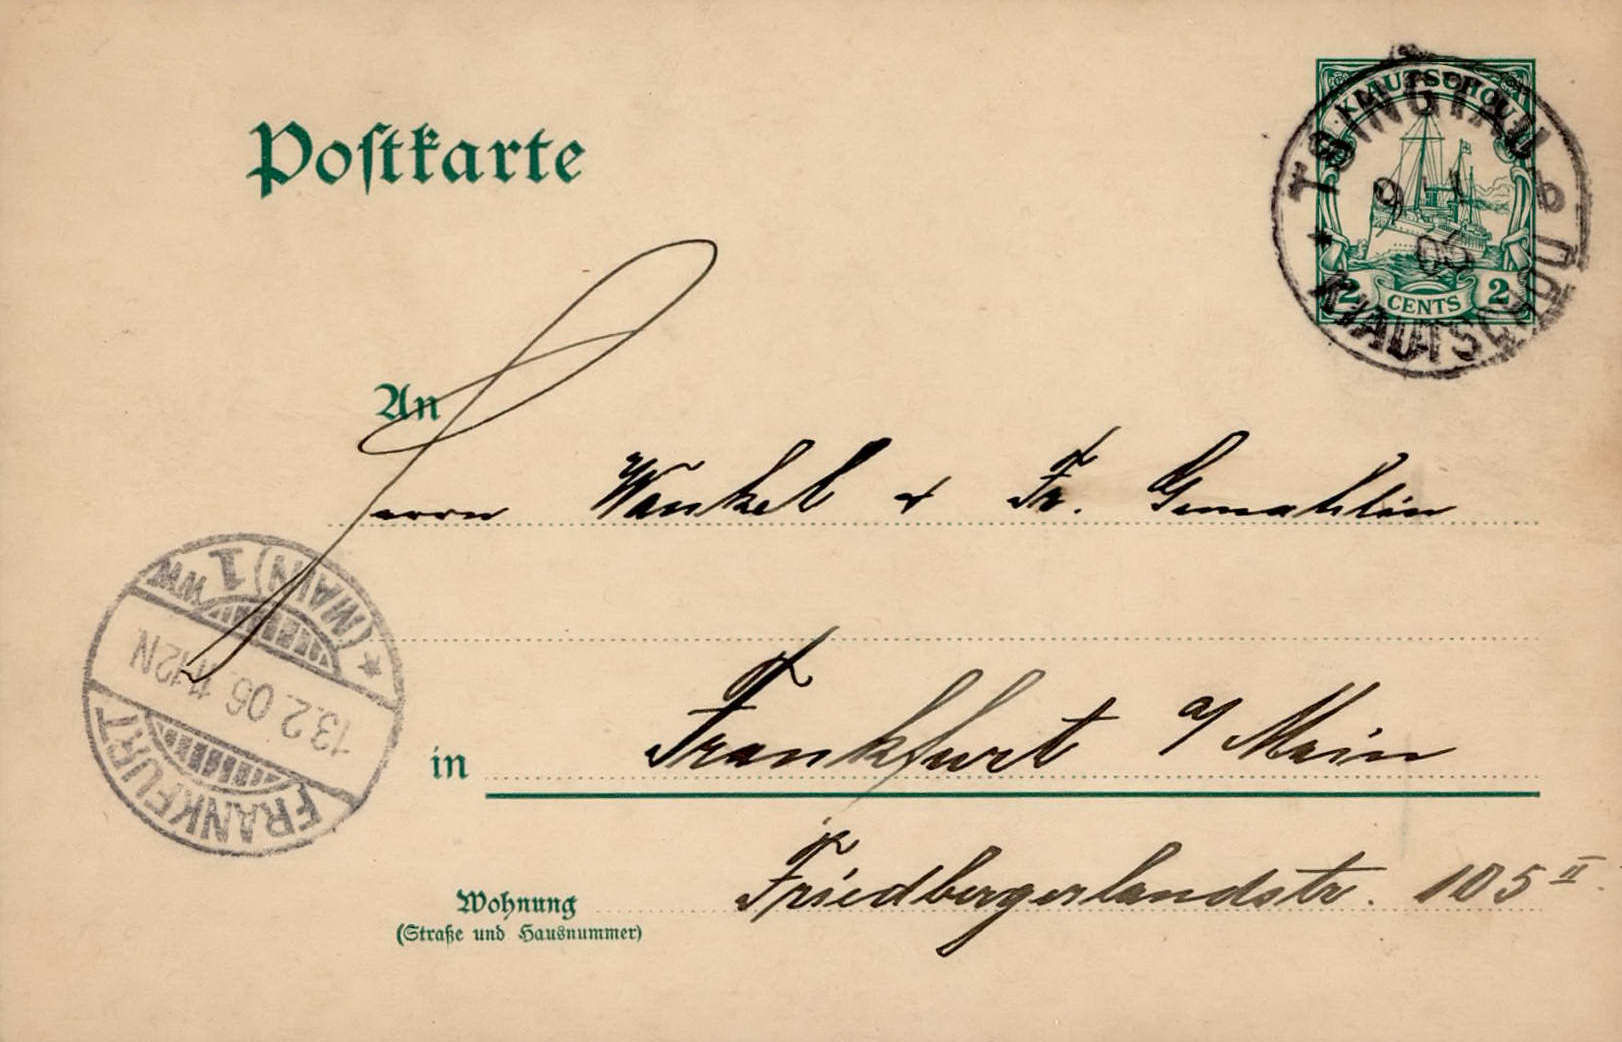 Postkarte
KIAUTSCHOU
2 CENTS 2
TSINGTAU
9 1
06
* KIAUTSCHOU
An
Herrn Wankel & Fr. Gemahlin
in Frankfurt a/ Main
Wohnung Friedbergerlandstr. 105 II.
(Straße und Hausnummer)
FRANKFURT
13.2.06. 11-12N
* (MAIN) 1